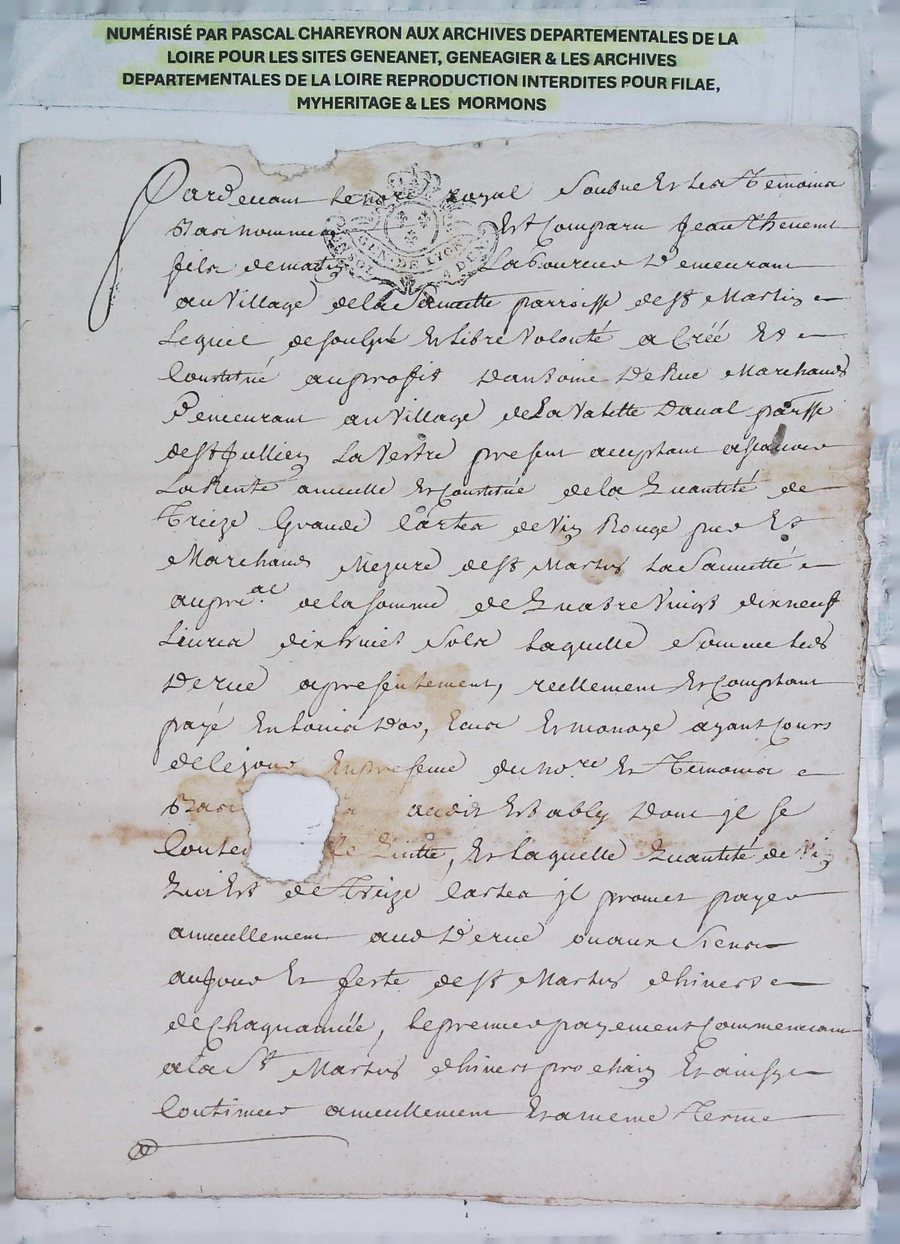 NUMÉRISÉ PAR PASCAL CHAREYRON AUX ARCHIVES DEPARTEMENTALES DE LA
LOIRE POUR LES SITES GENEANET, GENEAGIER & LES ARCHIVES
DEPARTEMENTALES DE LA LOIRE REPRODUCTION INTERDITES POUR FILAE,
MYHERITAGE & LES MORMONS
Pardevant le no.re royal Soubne Et les Temoins
Bas nommés Est Comparu Jean
GEN. DE LYON
fils de Laboureur Demeurant
au Village de la Sauvetté parroisse de St Martin
Lequel de son gré Et Libre Volonté a Créé Et
Constitué au profit D'antoine DeRue Marchand
Demeurant au Village de La Valette Daval parsse
de St Jullien La Vestre present acceptant ascavoir
La Rente annuelle Et Constitué de la Quantité de
Treize Grande Cartes de Vin Rouge pur Et
Marchand Mezure de St Martin La Sauvetté
au prix.al de la somme de Quatre Vingt dix neuf
Livres dix huict Sols Laquelle Somme led
Derue a presentement, reellement Et Comptant
payé En Louis D'or, Ecus Et monoye ayant Cours
de Ce jour En presence du no.re Et Temoins
Bas aud Establi Dont jl se
Conten le Quitte, Et Laquelle Quantité de Vin
Qui Est de Treize Cartes jl promet payer
annuellement aud Derue ou aux Siens
au jour Et feste de St Martin d'hivert
de Chaqu'année, le premier payement Commencant
a la St Martin d'hivert prochain Et ainsy
Continuer annuellement Et a meme Terme